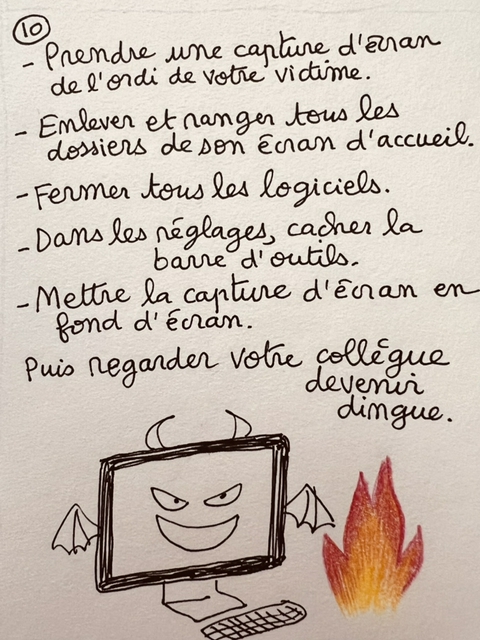 10
- Prendre une capture d'écran
de l'ordi de votre victime.
- Enlever et ranger tous les
dossiers de son écran d'accueil.
- Fermer tous les logiciels.
- Dans les réglages, cacher la
barre d'outils.
- Mettre la capture d'écran en
fond d'écran.
Puis regarder votre collègue
devenir
dingue.